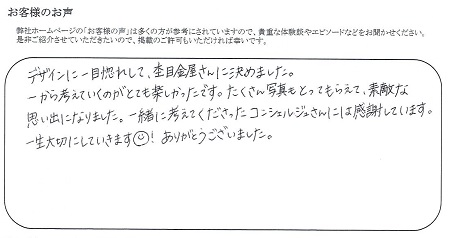 お客様のお声
弊社ホームページの「お客様の声」は多くの方が参考にされていますので、貴重な体験談やエピソードなどをお聞かせください。
是非ご紹介させていただきたいので、掲載のご許可もいただければ幸いです。
デザインに一目惚れして、杢目金屋さんに決めました。
一から考えていくのがとても楽しかったです。たくさん写真もとってもらえて、素敵な
思い出になりました。一緒に考えてくださったコンシェルジュさんには感謝しています。
一生大切にしていきます☺！ありがとうございました。